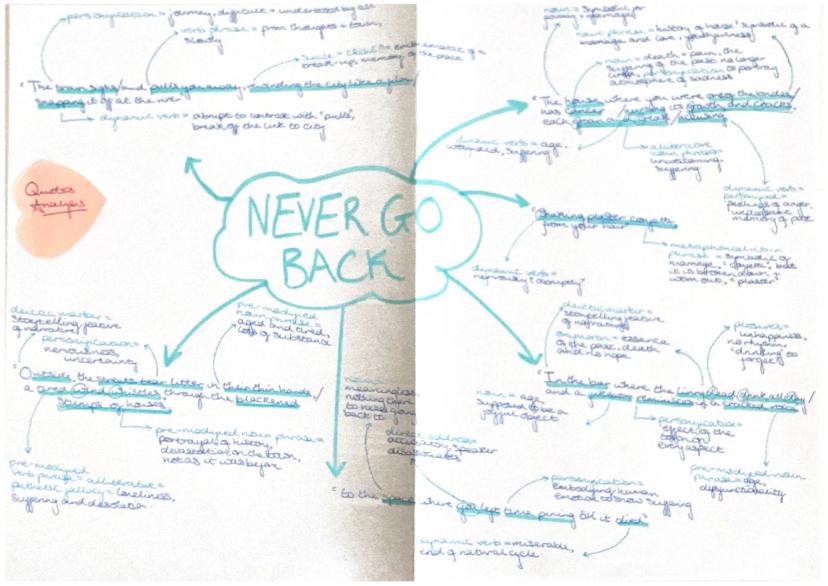 personification = journey, difficult + understood by all
verb phrase = from thoughts + town,
slowly
simile = cliché = emblematic of a
break-up, memory of the place
"The train sighs/and pulls you away, rewinding the city like a film,/
snapping it off at the river"
dynamic verb = abrupt to contrast with "pulls",
break of the link to city
Quotes
Analysis
noun = symbolic for
family + damaged
noun phrase = history of house? symbolic of a
marriage and love, youthfulness
noun = death + pain, the
suffering of the past no longer
personification to portray
atmosphere of sadness
"The house where you were one of the brides/
has cancer nursing its growth and cracks,
each groan and creak accusing
dynamic verb = age,
wounded, suffering
alliterative
noun phrase =
unwelcoming,
suffering
dynamic verb =
feelings of anger,
memory of past
NEVER GO
BACK
"shaking plaster confetti
from your hair"
dynamic verb =
nervously? abruptly?
metaphorical noun
phrase = symbolic of
marriage, "confetti", but
it is broken down +
worn out, "plaster"
deictic marker =
storytelling feature
of narrating
personification =
nervousness,
uncertainty
pre-modified
noun phrase =
aged and tired,
loss of substance
"Outside, the streets tear litter in their thin hands,/
a tired wind whistles through the blackened
stumps of houses
pre-modified noun phrase =
portrayal of history,
devastation on the town,
not as it was before
pre-modified
verb phrase = alliterative =
pathetic fallacy = loneliness,
suffering and desolation
meaningless,
nothing there
to necessarily go
back to
direct address =
accusatory, speaker
"to the space where you kept time pining till it died"
personification =
embodying human
emotion to show suffering
dynamic verb = miserable,
end of natural cycle
deictic marker =
storytelling feature
of narrating
oxymoron = essence
of the past, death
and no hope
plosives =
unhappiness,
no rhythm,
"drinking to
forget"
"In the bar where the living dead drink all day/
and a jukebox reminisces in a cracked voice
noun = age,
supposed to be a
joyful object
personification =
effect of the
town on
every aspect
pre-modified noun
phrase = age,
dysfunctionality